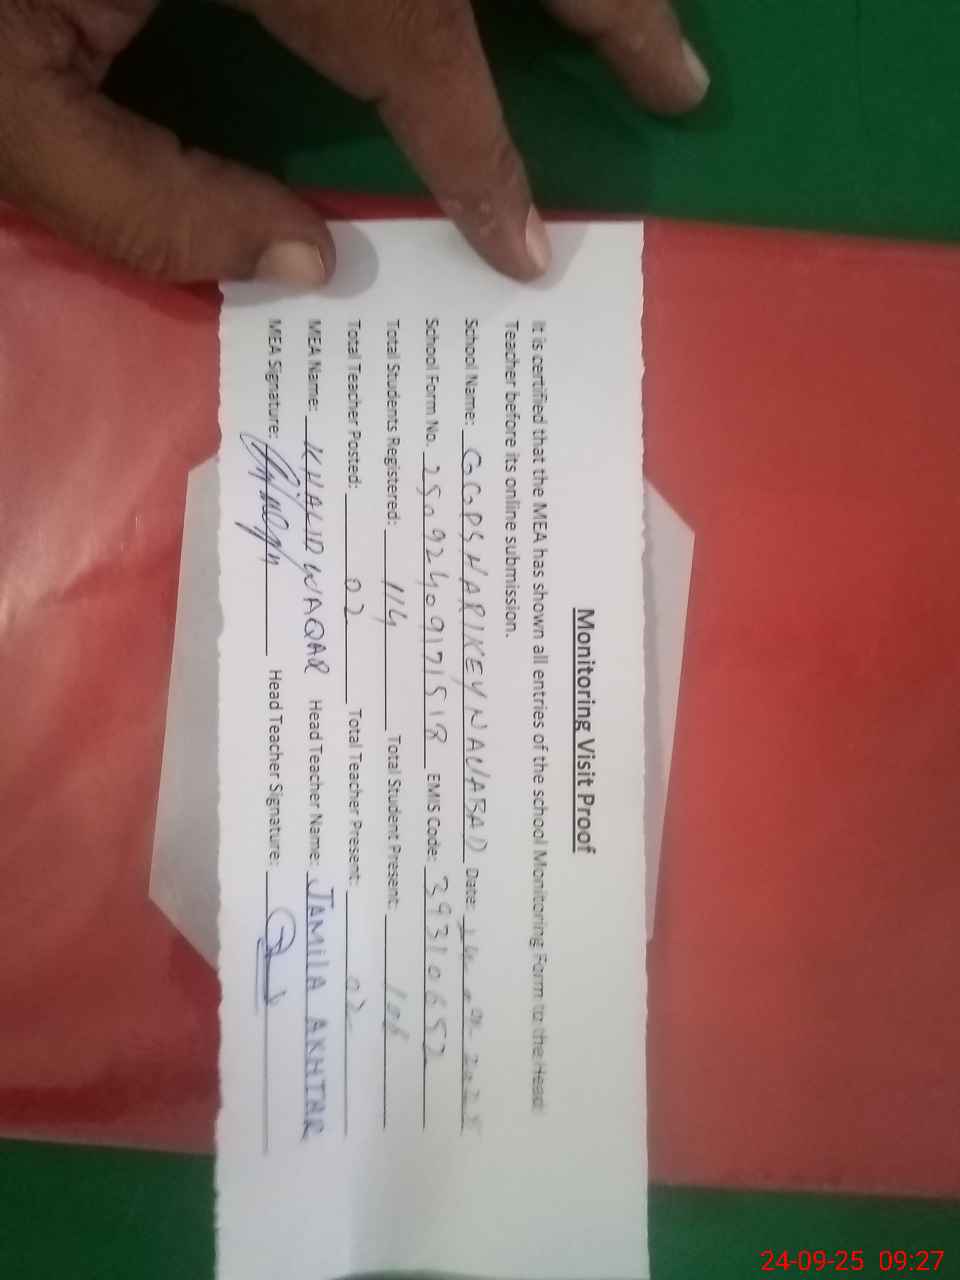 Monitoring Visit Proof
It is certified that the MEA has shown all entries of the school Monitoring Form to the Head
Teacher before its online submission.
School Name: GGPS HARIKEY NAUABAD Date: 24.09.2025
School Form No. 25092409171518 EMIS Code: 39310652
Total Students Registered: 114 Total Student Present: 106
Total Teacher Posted: 02 Total Teacher Present: 02
MEA Name: KHALID WAQAR Head Teacher Name: JAMILA AKHTAR
MEA Signature: Head Teacher Signature:
24-09-25 09:27